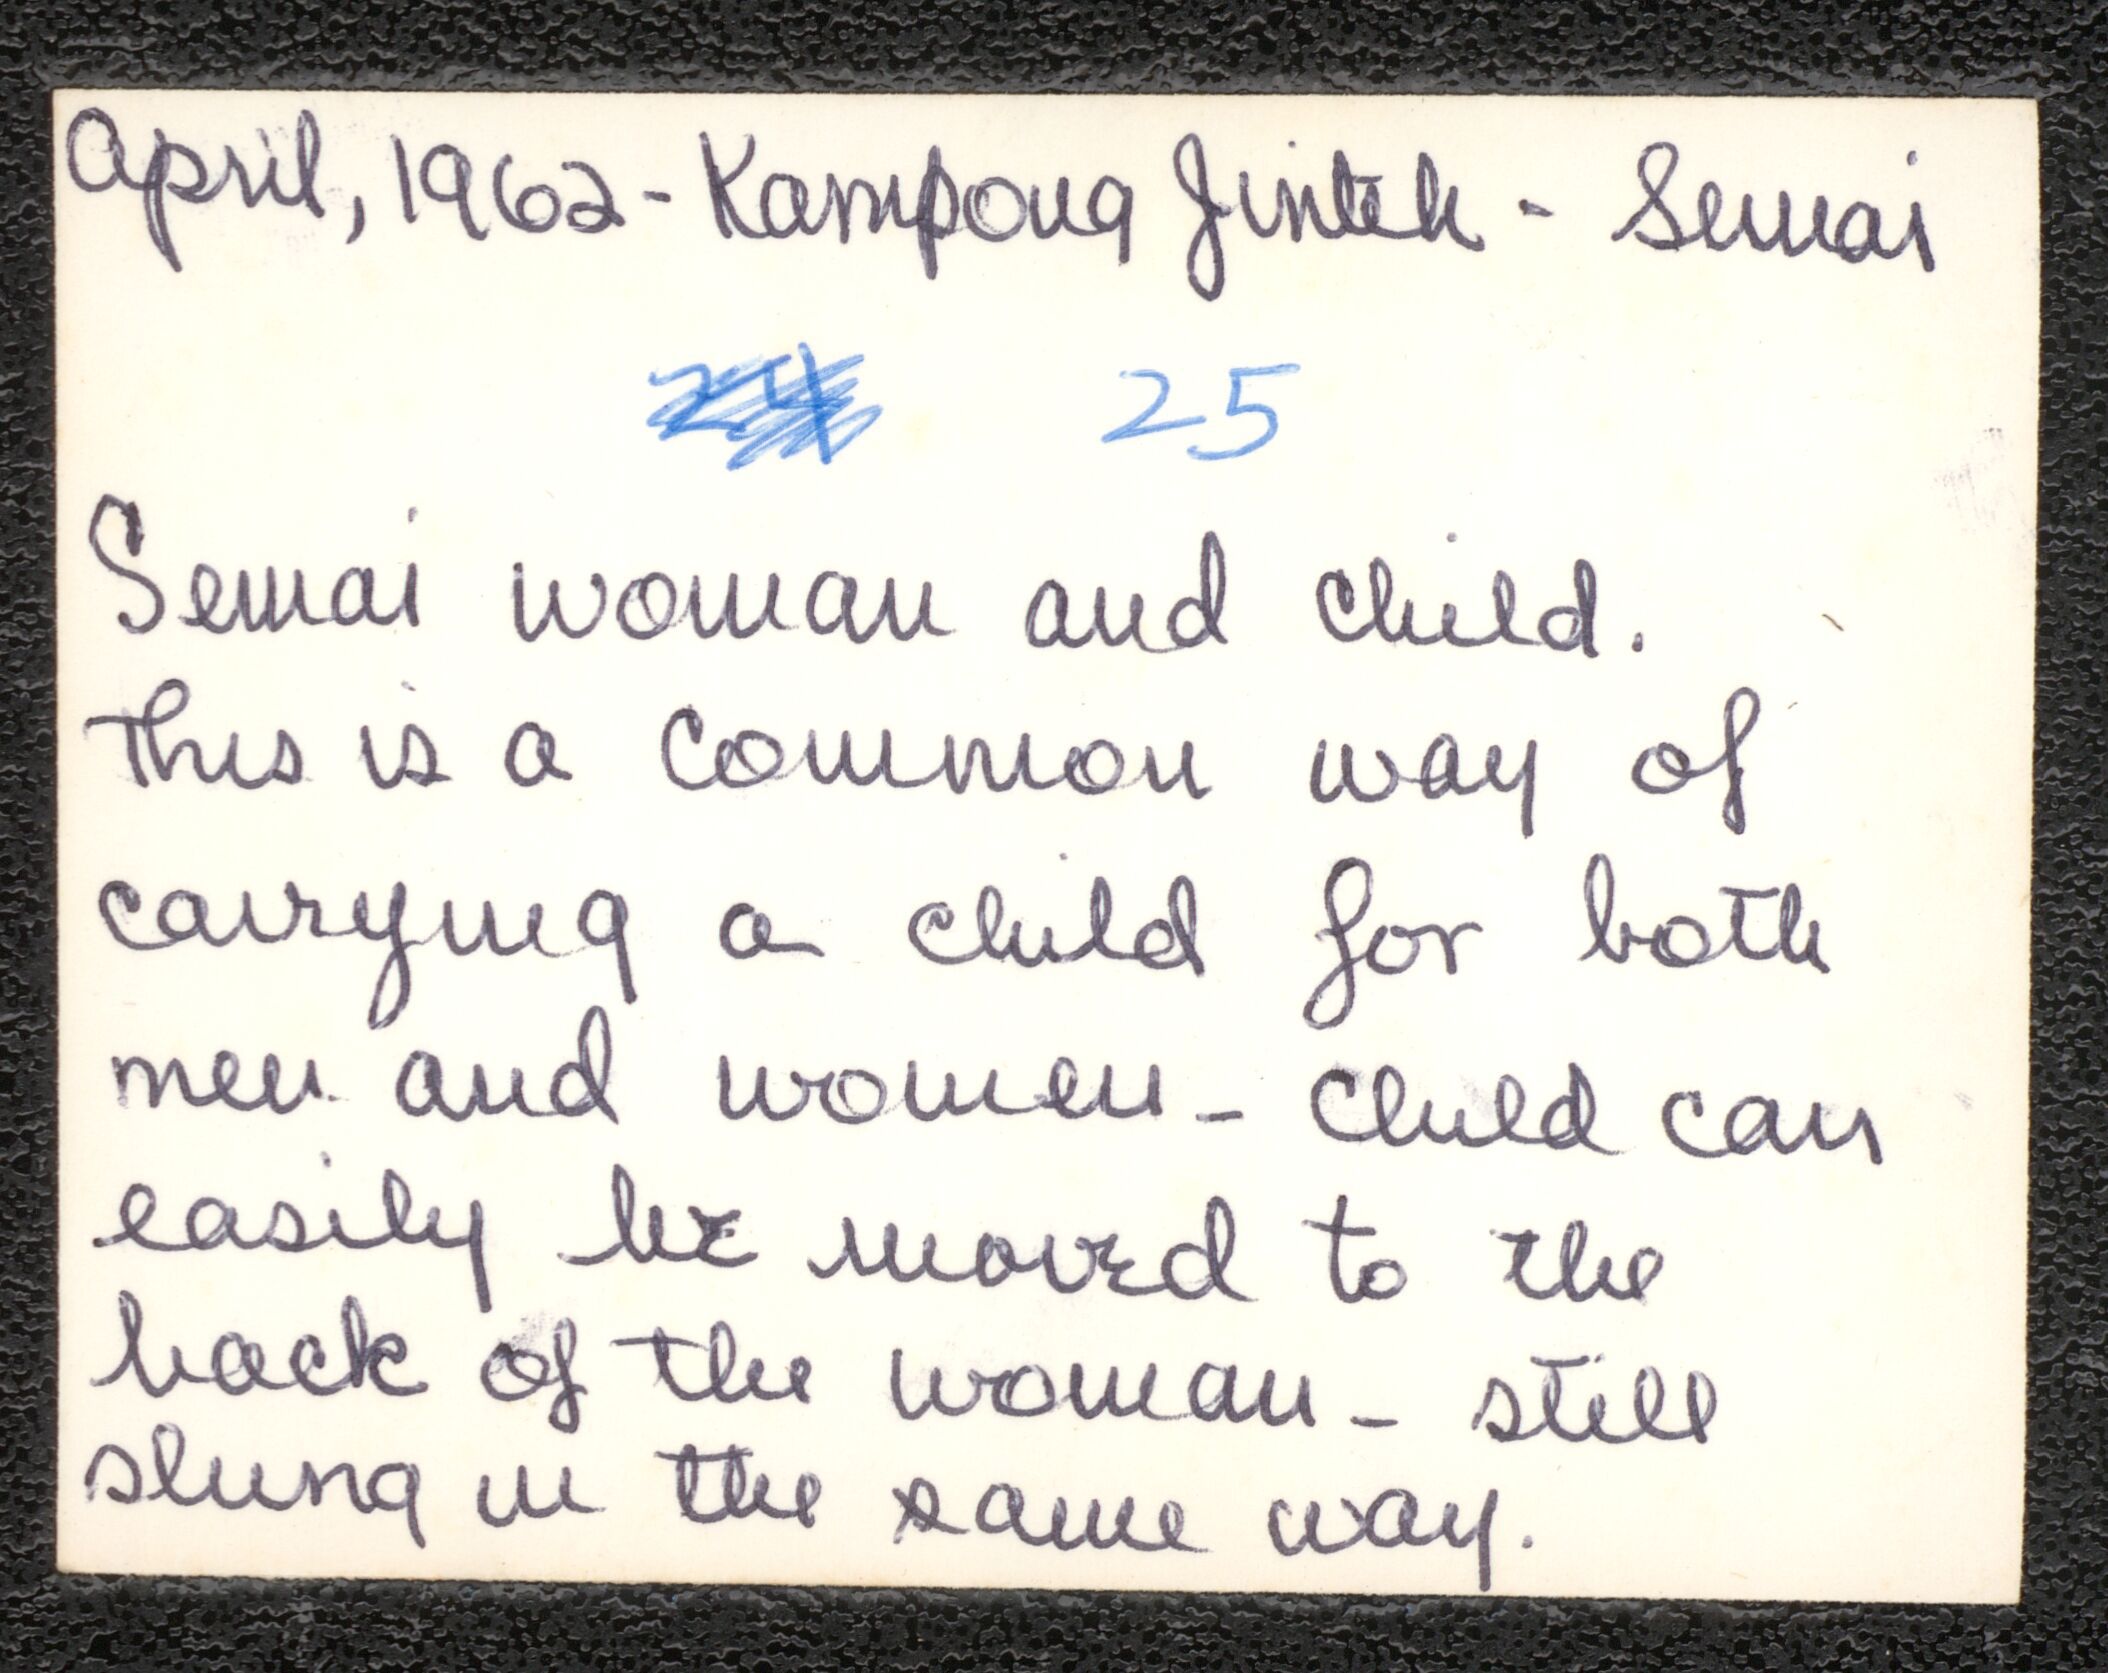 April, 1962 - Kampong Jinteh - Semai
24 25
Semai woman and child.
This is a common way of
carrying a child for both
men and women - child can
easily be moved to the
back of the woman - still
slung in the same way.